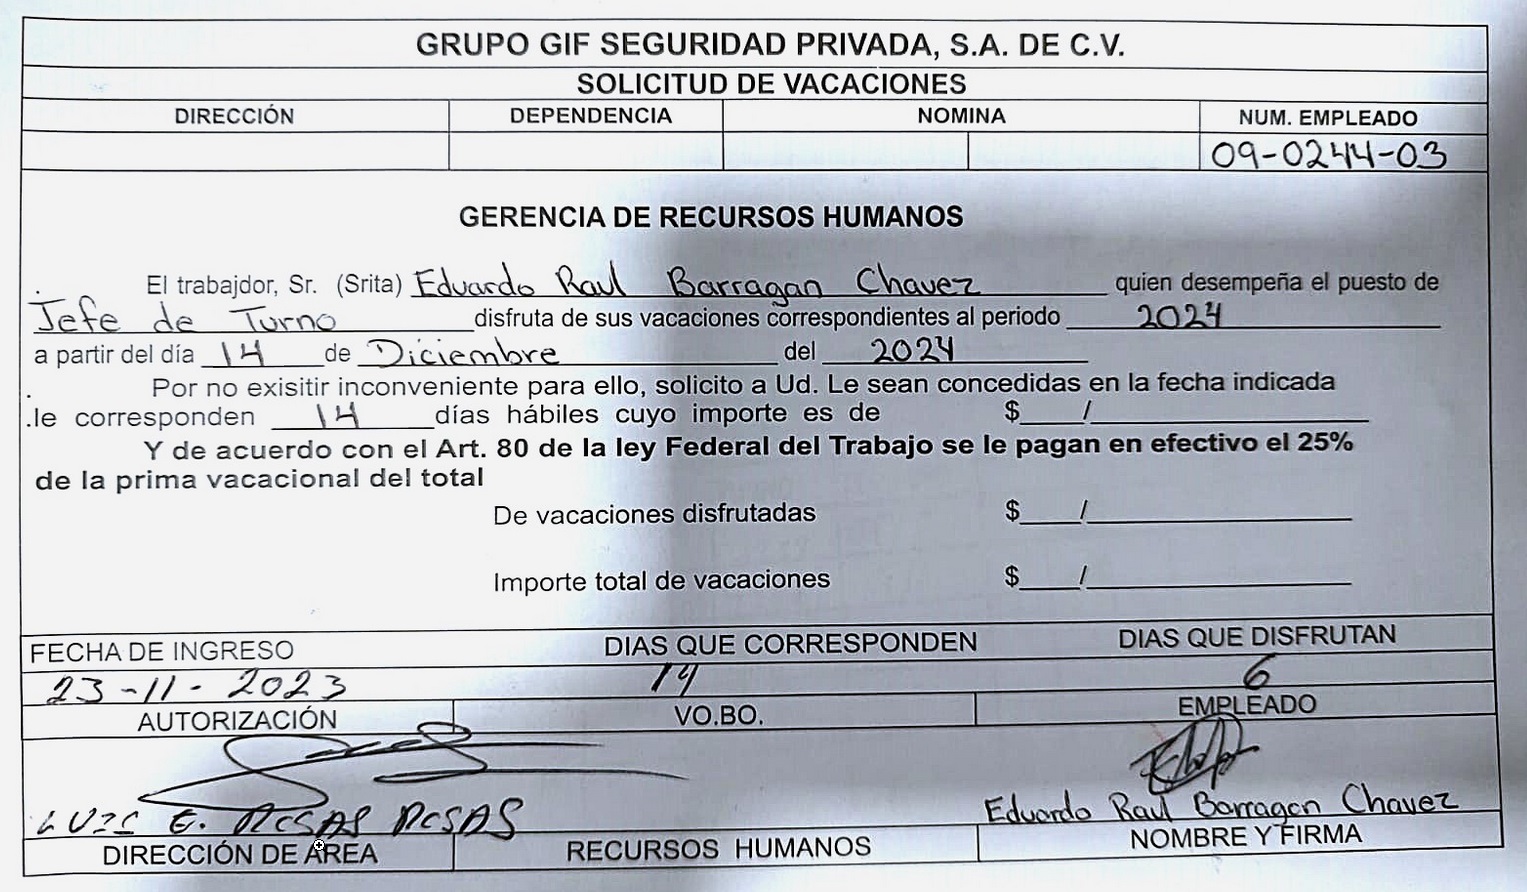 GRUPO GIF SEGURIDAD PRIVADA, S.A. DE C.V.
SOLICITUD DE VACACIONES
DIRECCIÓN DEPENDENCIA NOMINA NUM. EMPLEADO
09-0244-03
GERENCIA DE RECURSOS HUMANOS
El trabajdor, Sr. (Srita) Eduardo Raul Barragan Chavez quien desempeña el puesto de
Jefe de Turno disfruta de sus vacaciones correspondientes al periodo 2024
a partir del día 14 de Diciembre del 2024
Por no exisitir inconveniente para ello, solicito a Ud. Le sean concedidas en la fecha indicada
.le corresponden 14 días hábiles cuyo importe es de $____/____
Y de acuerdo con el Art. 80 de la ley Federal del Trabajo se le pagan en efectivo el 25%
de la prima vacacional del total
De vacaciones disfrutadas $____/____
Importe total de vacaciones $____/____
FECHA DE INGRESO DIAS QUE CORRESPONDEN DIAS QUE DISFRUTAN
23-11-2023 14 6
AUTORIZACIÓN VO.BO. EMPLEADO
LUIS E. ROSAS ROSAS Eduardo Raul Barragan Chavez
DIRECCIÓN DE AREA RECURSOS HUMANOS NOMBRE Y FIRMA